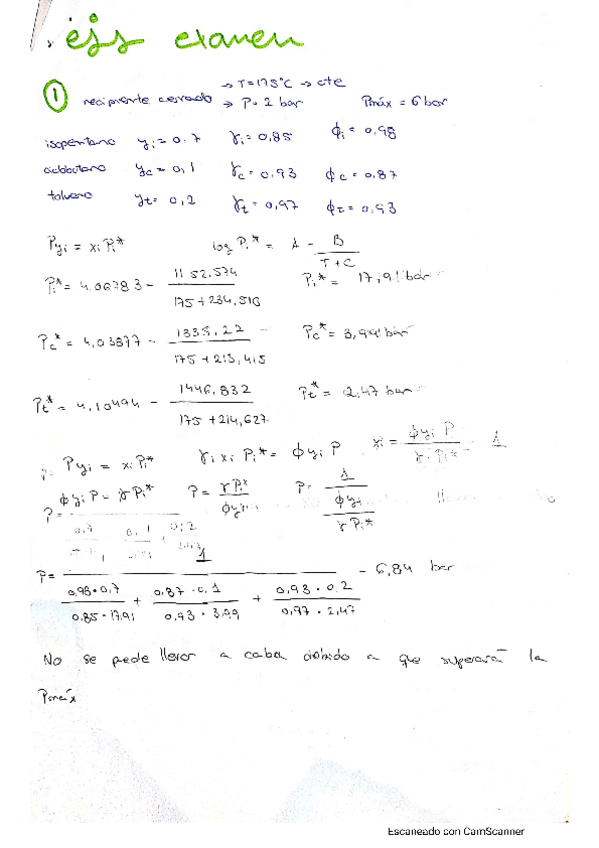 . ejs examen
① recipiente cerrado → T=175°C → cte
→ P= 2 bar Pmáx = 6 bar
isopentano yi = 0.7 γi = 0,85 ϕi = 0,98
ciclobutano yc = 0,1 γc = 0,93 ϕc = 0,87
tolueno yt = 0,2 γt = 0,97 ϕt = 0,93
Pyi = xi Pi* log Pi* = A - B / (T+C)
Pi* = 4.06783 - 1152.574 / (175+234,510) Pi* = 17,91 bar
Pc* = 4,03877 - 1335,22 / (175+213,415) Pc* = 3,99 bar
Pt* = 4,10494 - 1446,832 / (175+214,627) Pt* = 2,47 bar
Pyi = xi Pi* γi xi Pi* = ϕyi P xi = ϕyi P / γ Pi* 1
ϕyi P = γ Pi* P = γ Pi* / ϕyi P= 1 / (ϕyi / γ Pi*)
P= 1 / (0.98·0,7 / 0.85·17.91 + 0,87·0.1 / 0.93·3.99 + 0,93·0.2 / 0,97·2,47) = 6,84 bar
No se puede llevar a cabo debido a que superará la
Pmáx
Escaneado con CamScanner